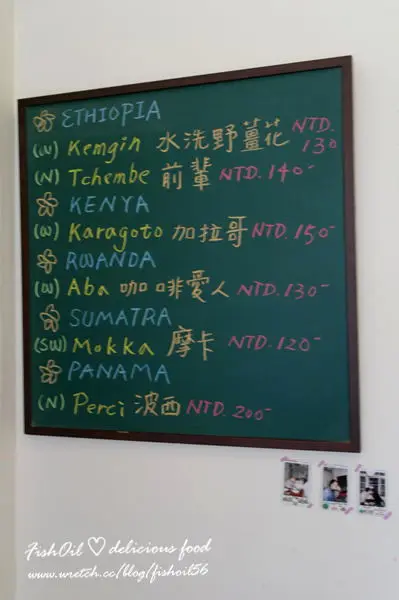 ETHIOPIA
(W) Kemgin 水洗野薑花 NTD. 130
(N) Tchembe 前輩 NTD. 140-
KENYA
(W) Karagoto 加拉哥 NTD. 150-
RWANDA
(W) Aba 咖啡愛人 NTD. 130-
SUMATRA
(SW) Mokka 摩卡 NTD. 120-
PANAMA
(N) Perci 波西 NTD. 200-
FishOil ♡ delicious food
www.wretch.cc/blog/fishoil56